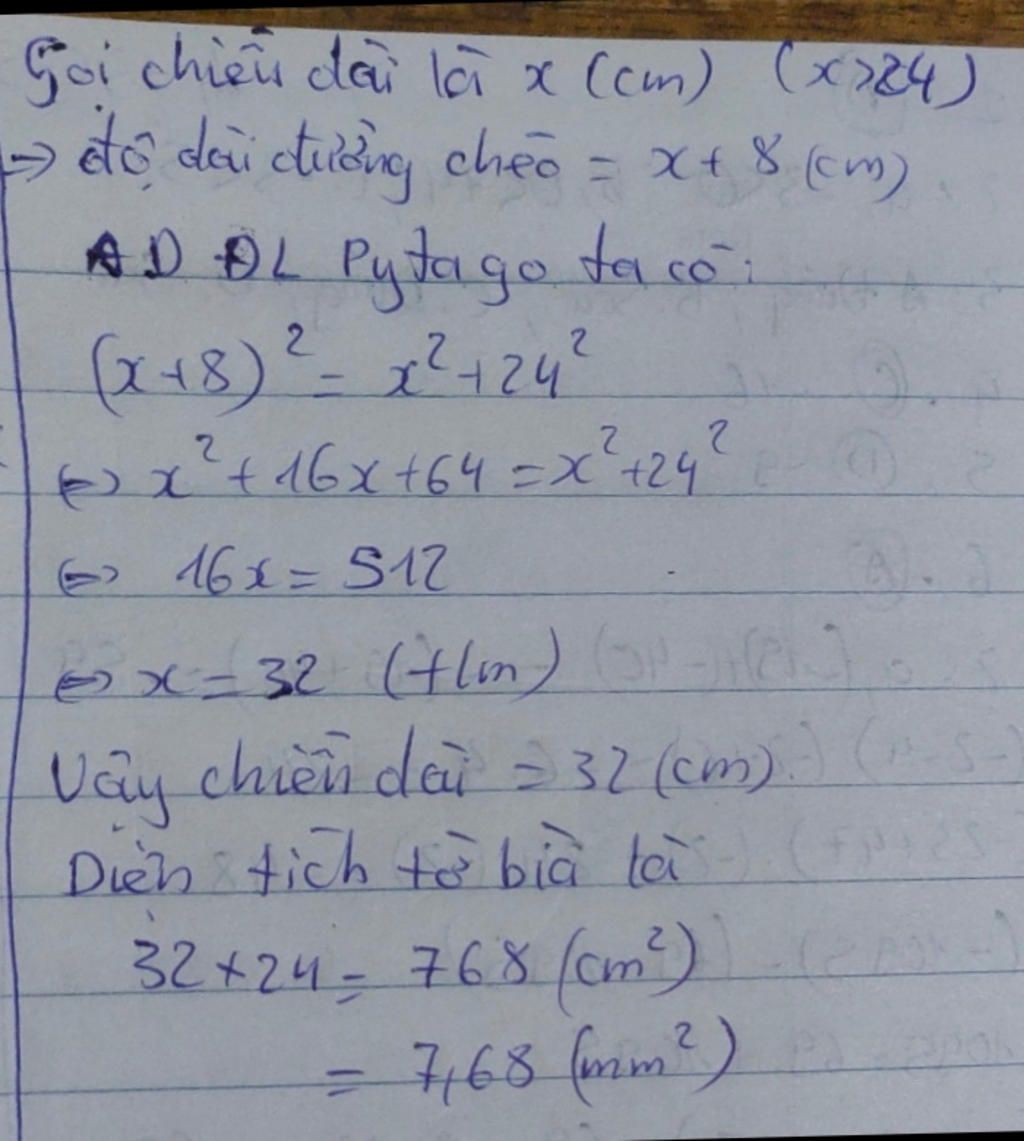 Gọi chiều dài là x (cm) (x>24)
=> độ dài đường chéo = x + 8 (cm)
AD ĐL Pytago ta có:
(x+8)² = x²+24²
<=> x² + 16x+64 = x²+24²
<=> 16x = 512
<=> x = 32 (t/m)
Vậy chiều dài = 32 (cm)
Diện tích tờ bìa là
32 x 24 = 768 (cm²)
= 7,68 (mm²)